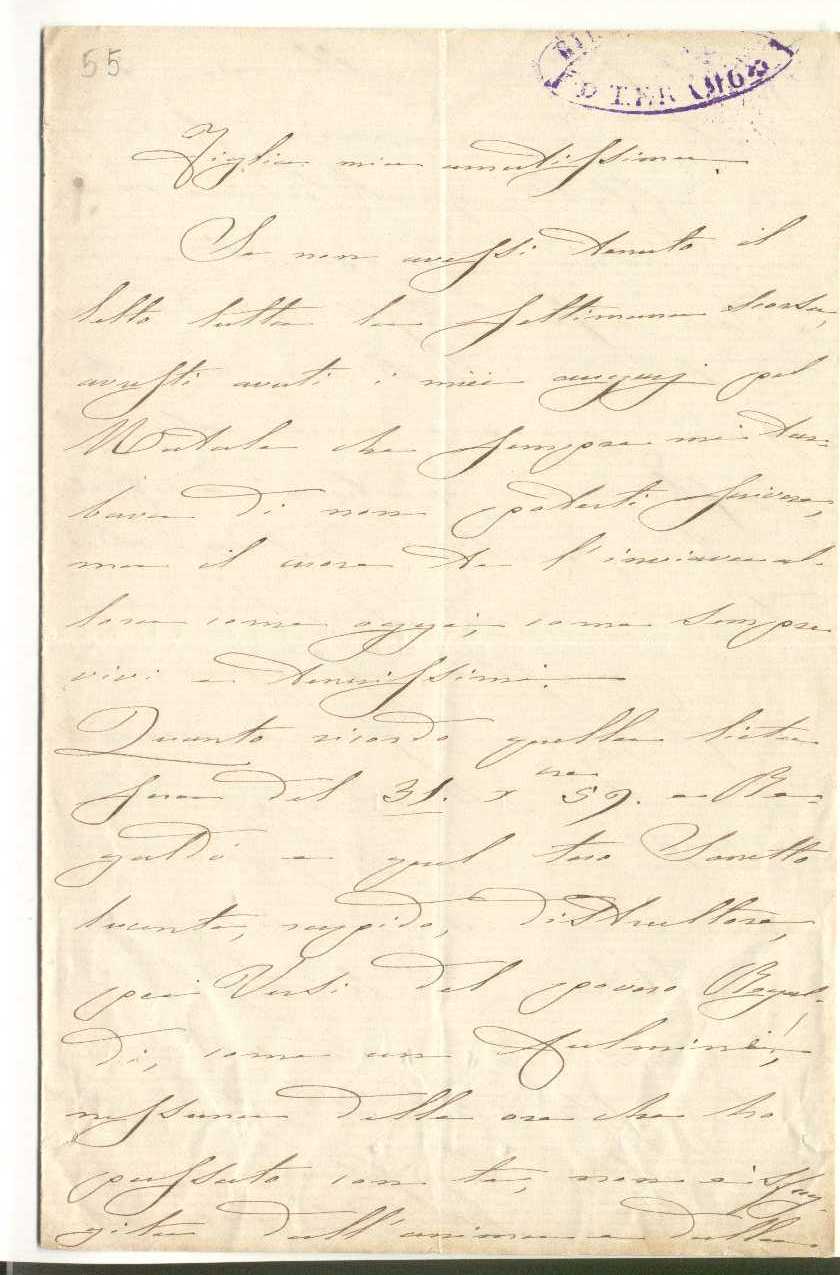 55
D TERAMO
Figlia mia amatissima.
Se non avessi tenuto il
letto tutta la settimana scorsa,
avresti avuti i miei augurj pel
Natale che sempre mi tur-
bava di non poterti scrivere,
ma il cuore te l'inviava al-
lora come oggi, come sempre
vivi e tenerissimi.
Quanto ricordo quella lieta
sera del 31. 59. a Re-
galdi e quel tuo Sonetto
lucente, rapido, distruttore,
pei Versi del povero Regal-
di, come un fulmine!,
nessuna delle ore che ho
passato con te, non è sfug-
gita dall'anima e dalla